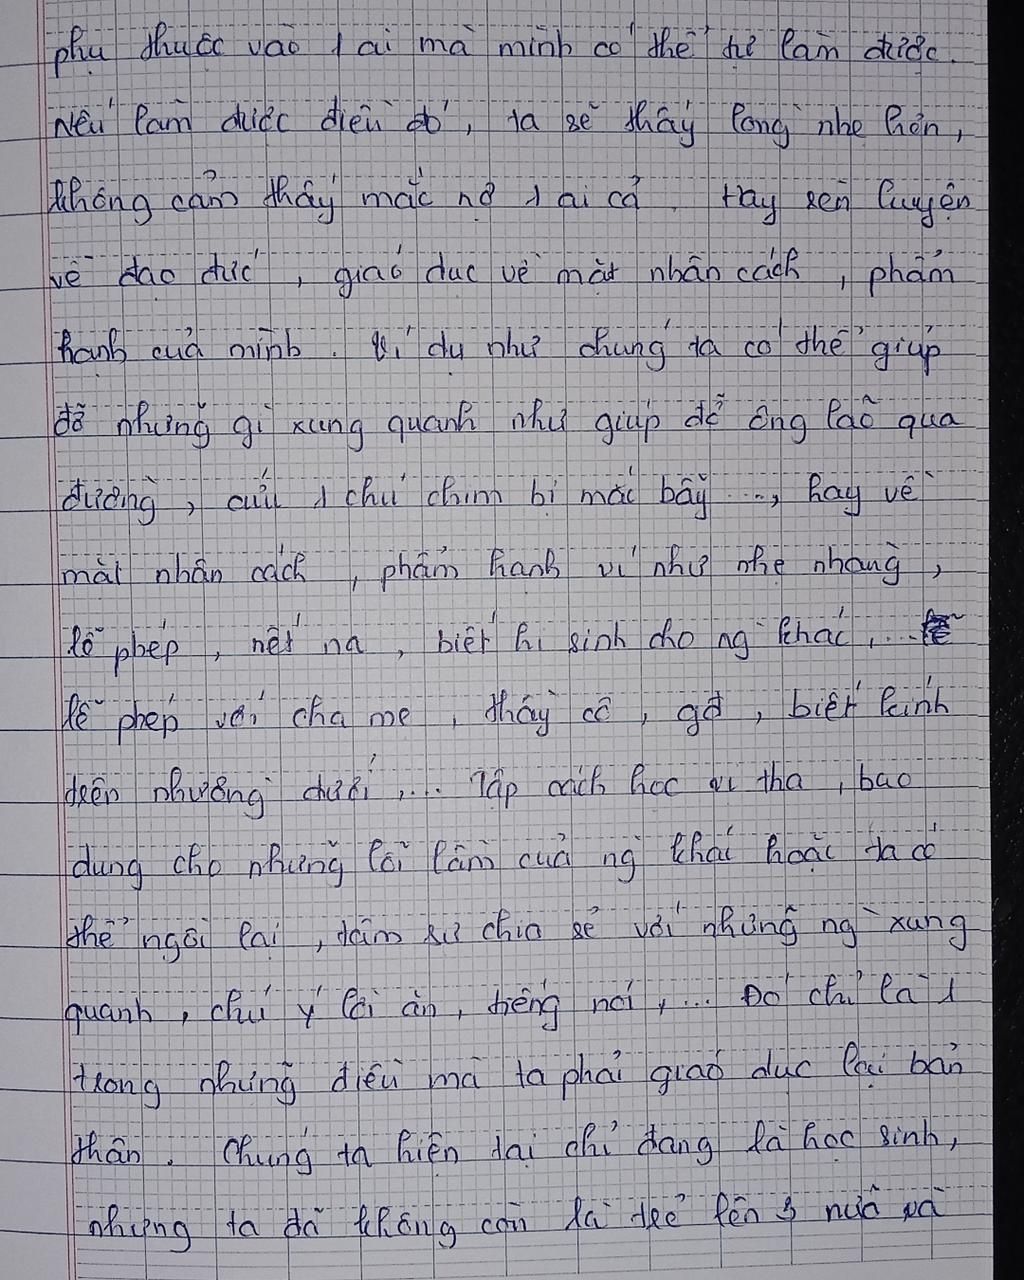 phụ thuộc vào 1 ai mà mình có thể tự làm được.
Nếu làm được điều đó, ta sẽ thấy lòng nhẹ hơn,
không cảm thấy mắc nợ 1 ai cả. Hay rèn luyện
về đạo đức, giáo dục về mặt nhân cách, phẩm
hạnh của mình. Ví dụ như chúng ta có thể giúp
đỡ những gì xung quanh như giúp đỡ ông lão qua
đường, cứu 1 chú chim bị mắc bẫy..., hay về
mặt nhân cách, phẩm hạnh ví như nhẹ nhàng,
lễ phép, nết na, biết hi sinh cho ng` khác,...
lễ phép với cha mẹ, thầy cô, gđ, biết kính
trên nhường dưới,... Tập cách học vị tha, bao
dung cho những lỗi lầm của ng` khác hoặc ta có
thể ngồi lại, tâm sự chia sẻ với những ng` xung
quanh, chú ý lời ăn, tiếng nói,... Đó chỉ là 1
trong những điều mà ta phải giáo dục lại bản
thân. Chúng ta hiện tại chỉ đang là học sinh,
nhưng ta đã không còn là trẻ lên 3 nữa và